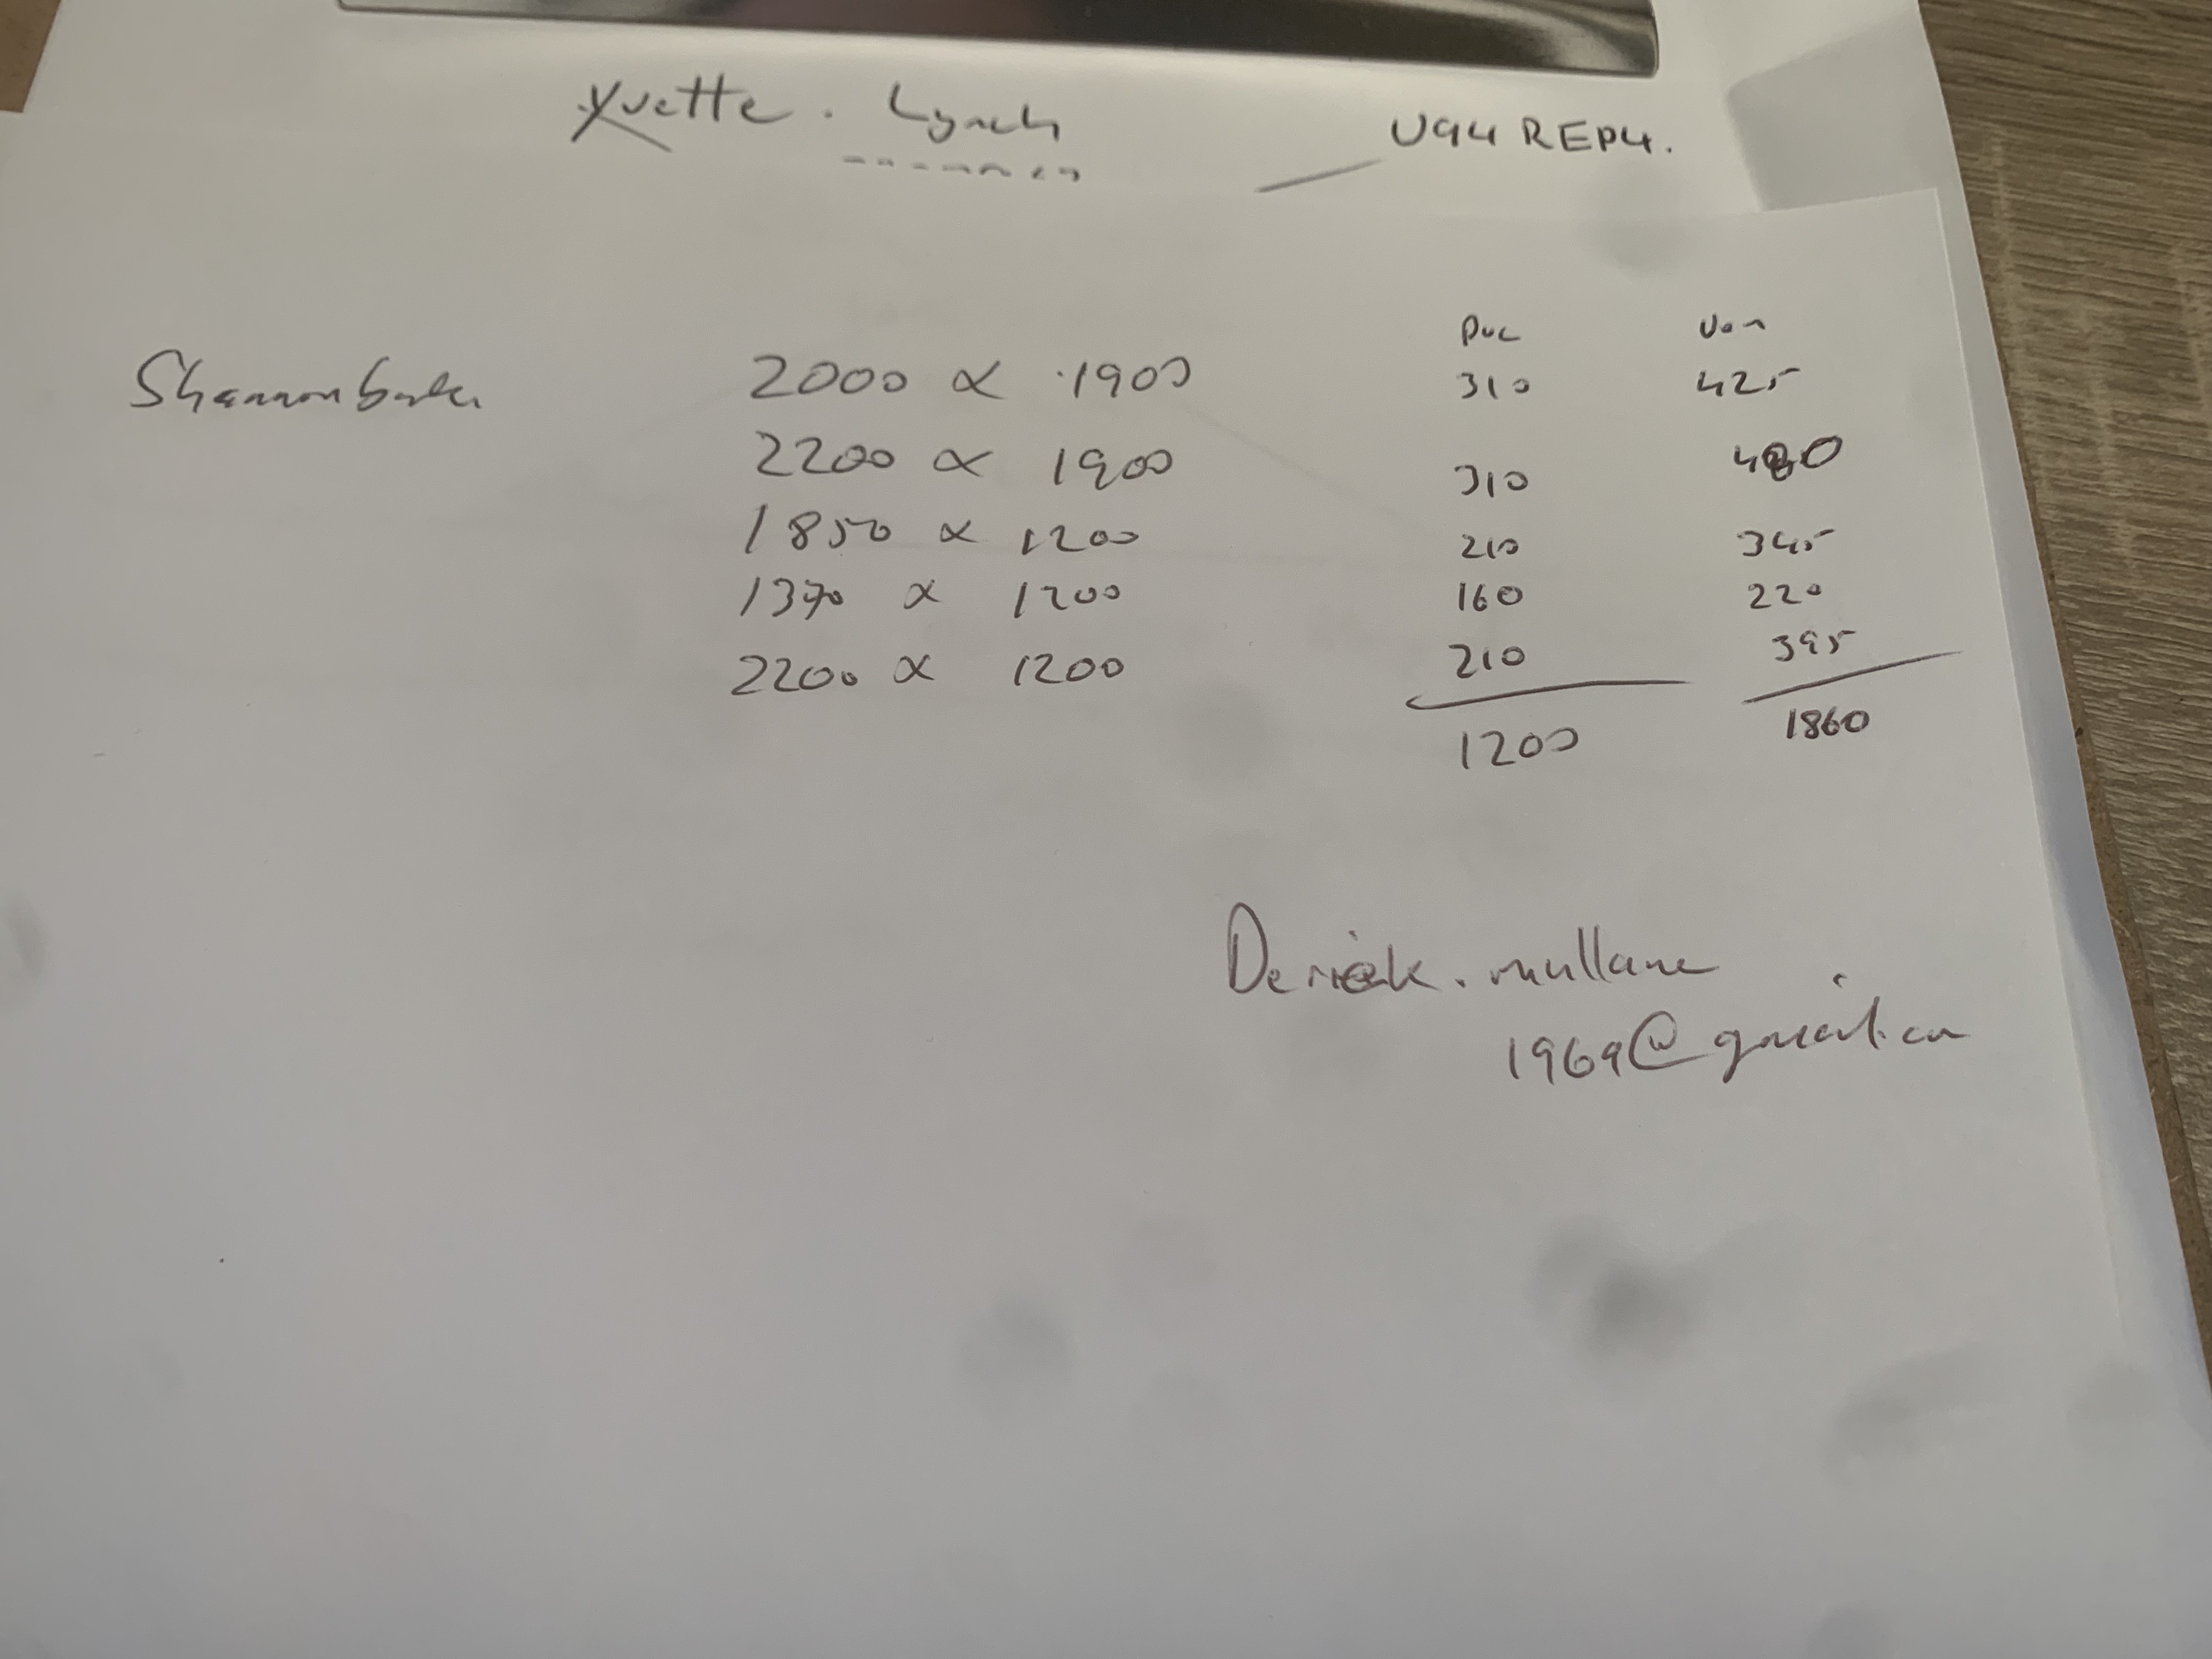 Yvette. Lynch
U94 REP4.
PVC Ven
Shannonbanks 2000 x 1900 310 425
2200 x 1900 310 480
1850 x 1200 210 345
1370 x 1200 160 220
2200 x 1200 210 395
1200 1860
Derick.mullane
1969@gmail.com